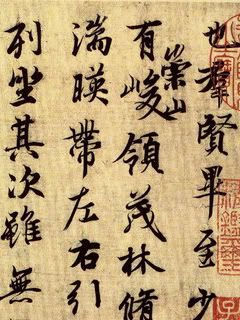 也羣賢畢至少
有崇山峻領茂林脩
湍暎帶左右引
列坐其次雖無